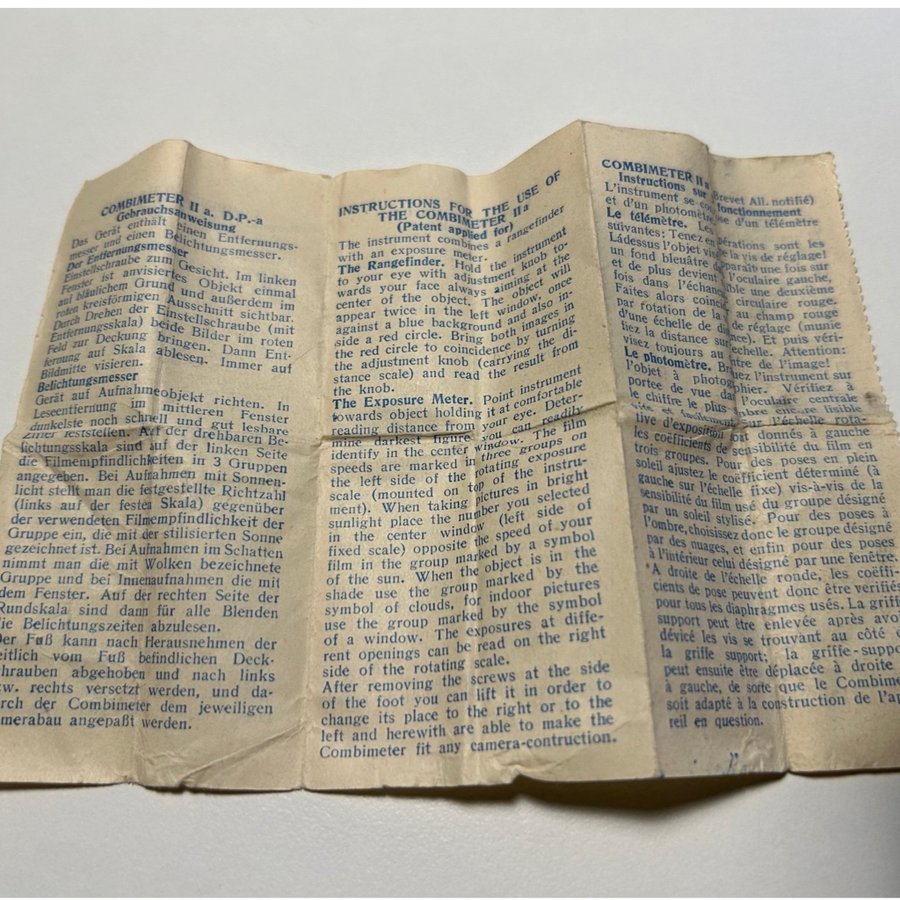 COMBIMETER II a. D.P.-a
Gebrauchsanweisung
Das Gerät enthält einen Entfernungs-
messer und einen Belichtungsmesser.
Der Entfernungsmesser
Einstellschraube zum Gesicht. Im linken
Fenster ist anvisiertes Objekt einmal
auf bläulichem Grund und außerdem im
roten kreisförmigen Ausschnitt sichtbar.
Durch Drehen der Einstellschraube (mit
Entfernungsskala) beide Bilder im roten
Feld zur Deckung bringen. Dann Ent-
fernung auf Skala ablesen. Immer auf
Bildmitte visieren.
Belichtungsmesser
Gerät auf Aufnahmeobjekt richten. In
Leseentfernung im mittleren Fenster
dunkelste noch schnell und gut lesbare
Ziffer feststellen. Auf der drehbaren Be-
lichtungsskala sind auf der linken Seite
die Filmempfindlichkeiten in 3 Gruppen
angegeben. Bei Aufnahmen mit Sonnen-
licht stellt man die festgestellte Richtzahl
(links auf der festen Skala) gegenüber
der verwendeten Filmempfindlichkeit der
Gruppe ein, die mit der stilisierten Sonne
gezeichnet ist. Bei Aufnahmen im Schatten
nimmt man die mit Wolken bezeichnete
Gruppe und bei Innenaufnahmen die mit
dem Fenster. Auf der rechten Seite der
Rundskala sind dann für alle Blenden
die Belichtungszeiten abzulesen.
Der Fuß kann nach Herausnehmen der
eitlich vom Fuß befindlichen Deck-
hrauben abgehoben und nach links
zw. rechts versetzt werden, und da-
urch der Combimeter dem jeweiligen
amerabau angepaßt werden.
INSTRUCTIONS FOR THE USE OF
THE COMBIMETER IIa
(Patent applied for)
The instrument combines a rangefinder
with an exposure meter.
The Rangefinder. Hold the instrument
to your eye with adjustment knob to-
wards your face always aiming at the
center of the object. The object will
appear twice in the left window, once
against a blue background and also in-
side a red circle. Bring both images in
the red circle to coincidence by turning
the adjustment knob (carrying the di-
stance scale) and read the result from
the knob.
The Exposure Meter. Point instrument
towards object holding it at comfortable
reading distance from your eye. Deter-
mine darkest figure you can readily
identify in the center window. The film
speeds are marked in three groups on
the left side of the rotating exposure
scale (mounted on top of the instru-
ment). When taking pictures in bright
sunlight place the number you selected
in the center window (left side of
fixed scale) opposite the speed of your
film in the group marked by a symbol
of the sun. When the object is in the
shade use the group marked by the
symbol of clouds, for indoor pictures
use the group marked by the symbol
of a window. The exposures at diffe-
rent openings can be read on the right
side of the rotating scale.
After removing the screws at the side
of the foot you can lift it in order to
change its place to the right or to the
left and herewith are able to make the
Combimeter fit any camera-contruction.
COMBIMETER II a Brevet All. notifié)
Instructions sur fonctionnement
L'instrument se co se d'un télémètre
et d'un photomètre
Le télémètre. Les opérations sont les
suivantes; Tenez en de la vis de réglage!
Ládessus l'objet vi paraît une fois sur
un fond bleuâtre d l'oculaire gauche,
et de plus devient ble une deuxième
fois dans l'échan circulaire rouge.
Faites alors coincid au champ rouge
par rotation de la de réglage (munie
d'une échelle de di ce). Et puis véri-
fiez la distance sur échelle. Attention:
visez toujours au tre de l'image!
Le photomètre. Br uez l'instrument sur
l'objet à photog phier. Vérifiez à
portee de vue dans l'oculaire centrale
le chiffre le plus mbre encre lisible
vite et facilement l'échelle rota-
tive d'exposition sont donnés à gauche
les coéfficients de sensibilité du film en
trois groupes. Pour des poses en plein
soleil ajustez le coëfficient déterminé (à
gauche sur l'échelle fixe) vis-à-vis de la
sensibilité du film usé du groupe désigné
par un soleil stylisé. Pour des poses à
l'ombre, choisissez donc le groupe désigné
par des nuages, et enfin pour des poses
à l'intérieur celui désigné par une fenêtre.
A droite de l'échelle ronde, les coëffi-
cients de pose peuvent donc être vérifiés
pour tous les diaphragmes usés. La griffe
support peut être enlevée après avo
dévicé les vis se trouvant au côté d
la griffe support; la griffe-suppo
peut ensuite être déplacée à droite
à gauche, de sorte que le Combime
soit adapté à la construction de l'ap
reil en question.